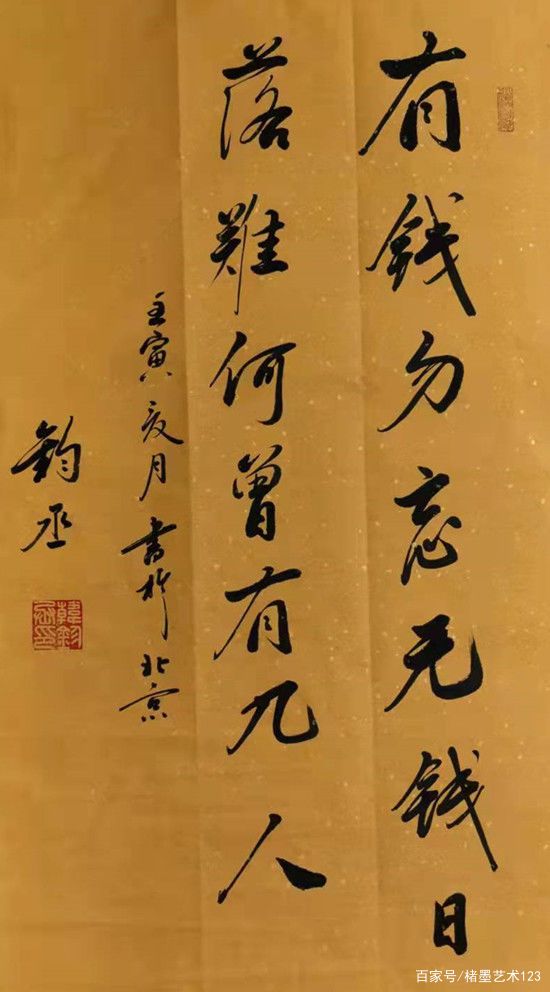 有钱勿忘无钱日
落难何曾有几人
壬寅亥月书於北京
钧丞
百家号/楮墨艺术123